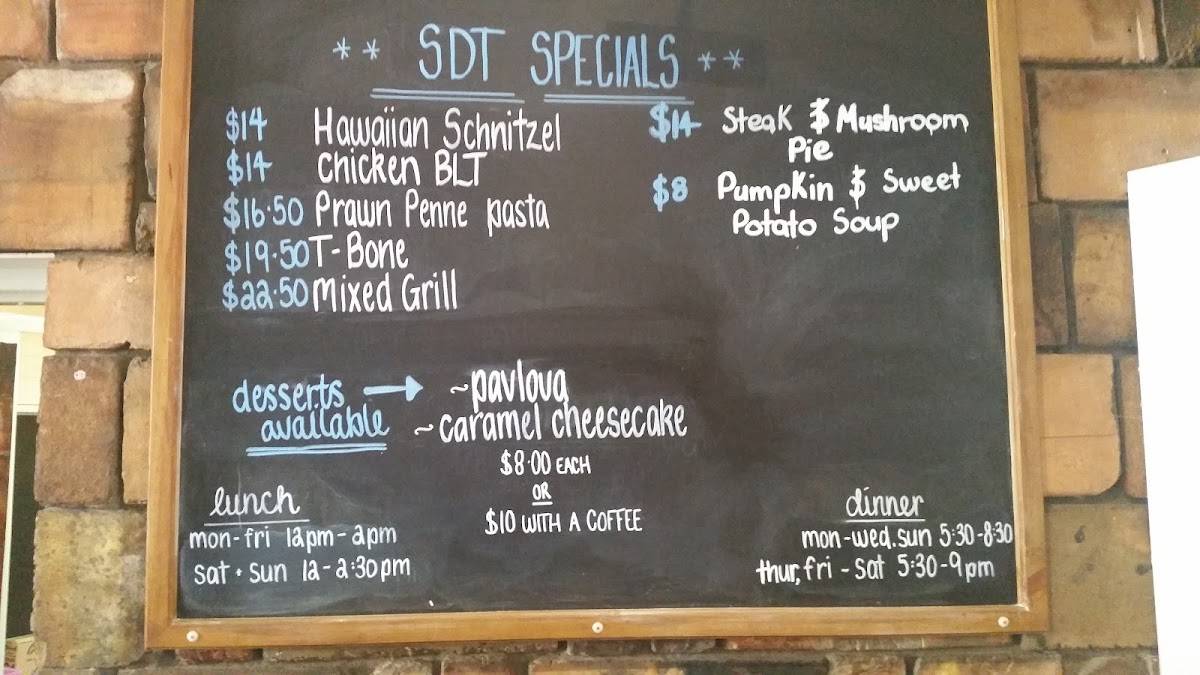 ** SDT SPECIALS **
$14 Hawaiian Schnitzel
$14 Chicken BLT
$16.50 Prawn Penne pasta
$19.50 T-Bone
$22.50 Mixed Grill
$14 Steak & Mushroom
Pie
$8 Pumpkin & Sweet
Potato Soup
desserts → ~pavlova
available ~caramel cheesecake
$8.00 EACH
OR
$10 WITH A COFFEE
lunch
mon-fri 12pm-2pm
sat + sun 12-2:30pm
dinner
mon-wed.sun 5:30-8:30
thur, fri - sat 5:30-9pm